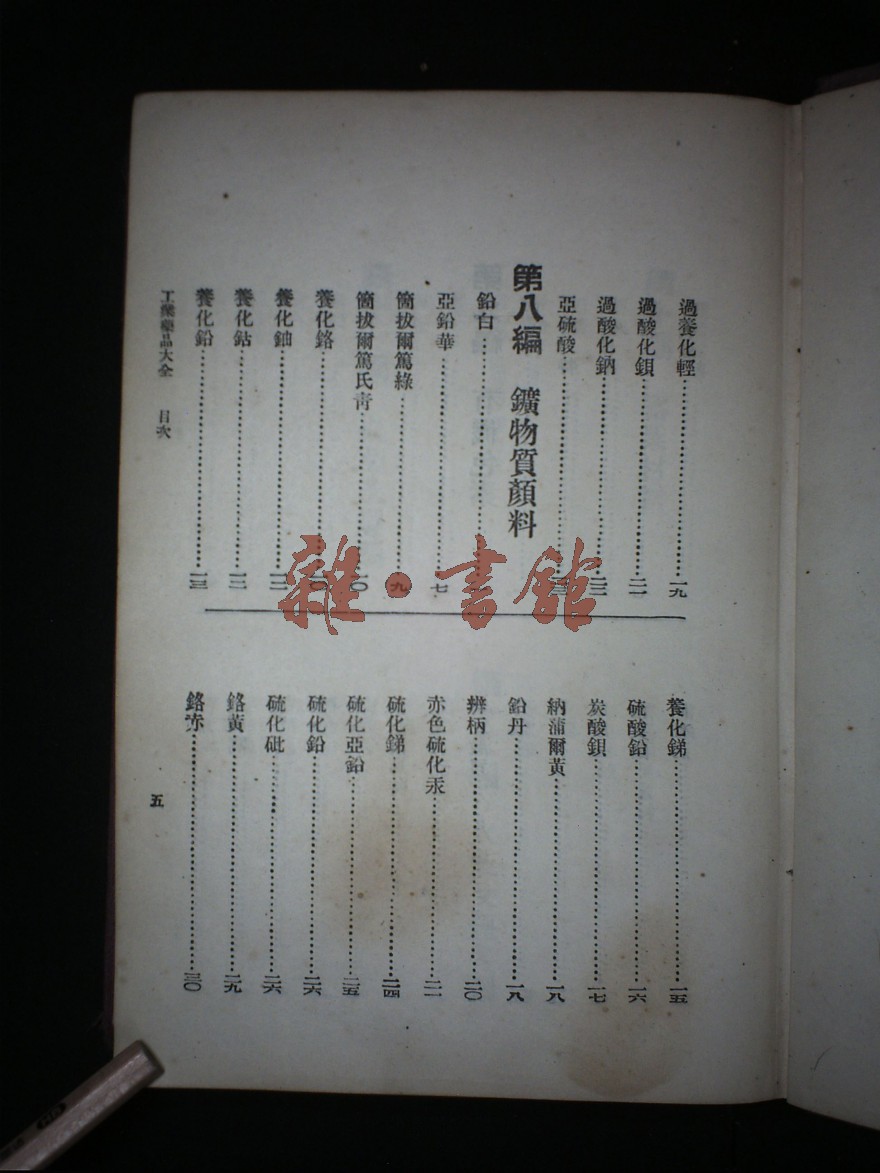 過養化輕…………一九
過酸化鋇…………二一
過酸化鈉…………二二
亞硫酸…………
第八編 鑛物質顏料
鉛白…………
亞鉛華…………七
簡拔爾篤綠…………九
簡拔爾篤氏靑…………一〇
養化鉻…………一〇
養化鈾…………一二
養化鈷…………一二
養化鉛…………一三
養化銻…………一五
硫酸鉛…………一六
炭酸鋇…………一七
納蒲爾黃…………一八
鉛丹…………一八
辨柄…………二〇
赤色硫化汞…………二二
硫化銻…………二四
硫化亞鉛…………二五
硫化鉛…………二六
硫化砒…………二六
鉻黃…………二九
鉻赤…………三〇
工業藥品大全 目次
五
雜·書館